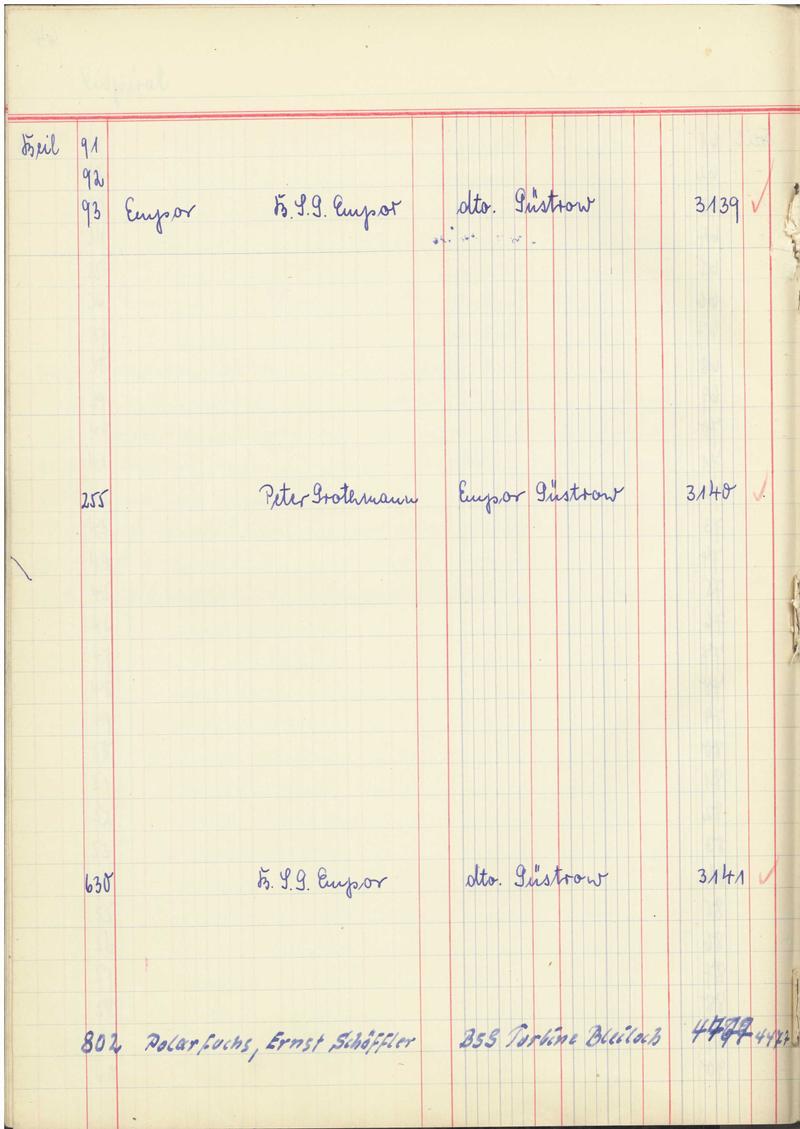 Beil 91
92
93 Empor B.S.G. Empor dto. Güstrow 3139
255 Peter Grothmann Empor Güstrow 3140
630 B.S.G. Empor dto. Güstrow 3141
802 Polarfuchs, Ernst Schöffler BSG Turbine Bleiloch